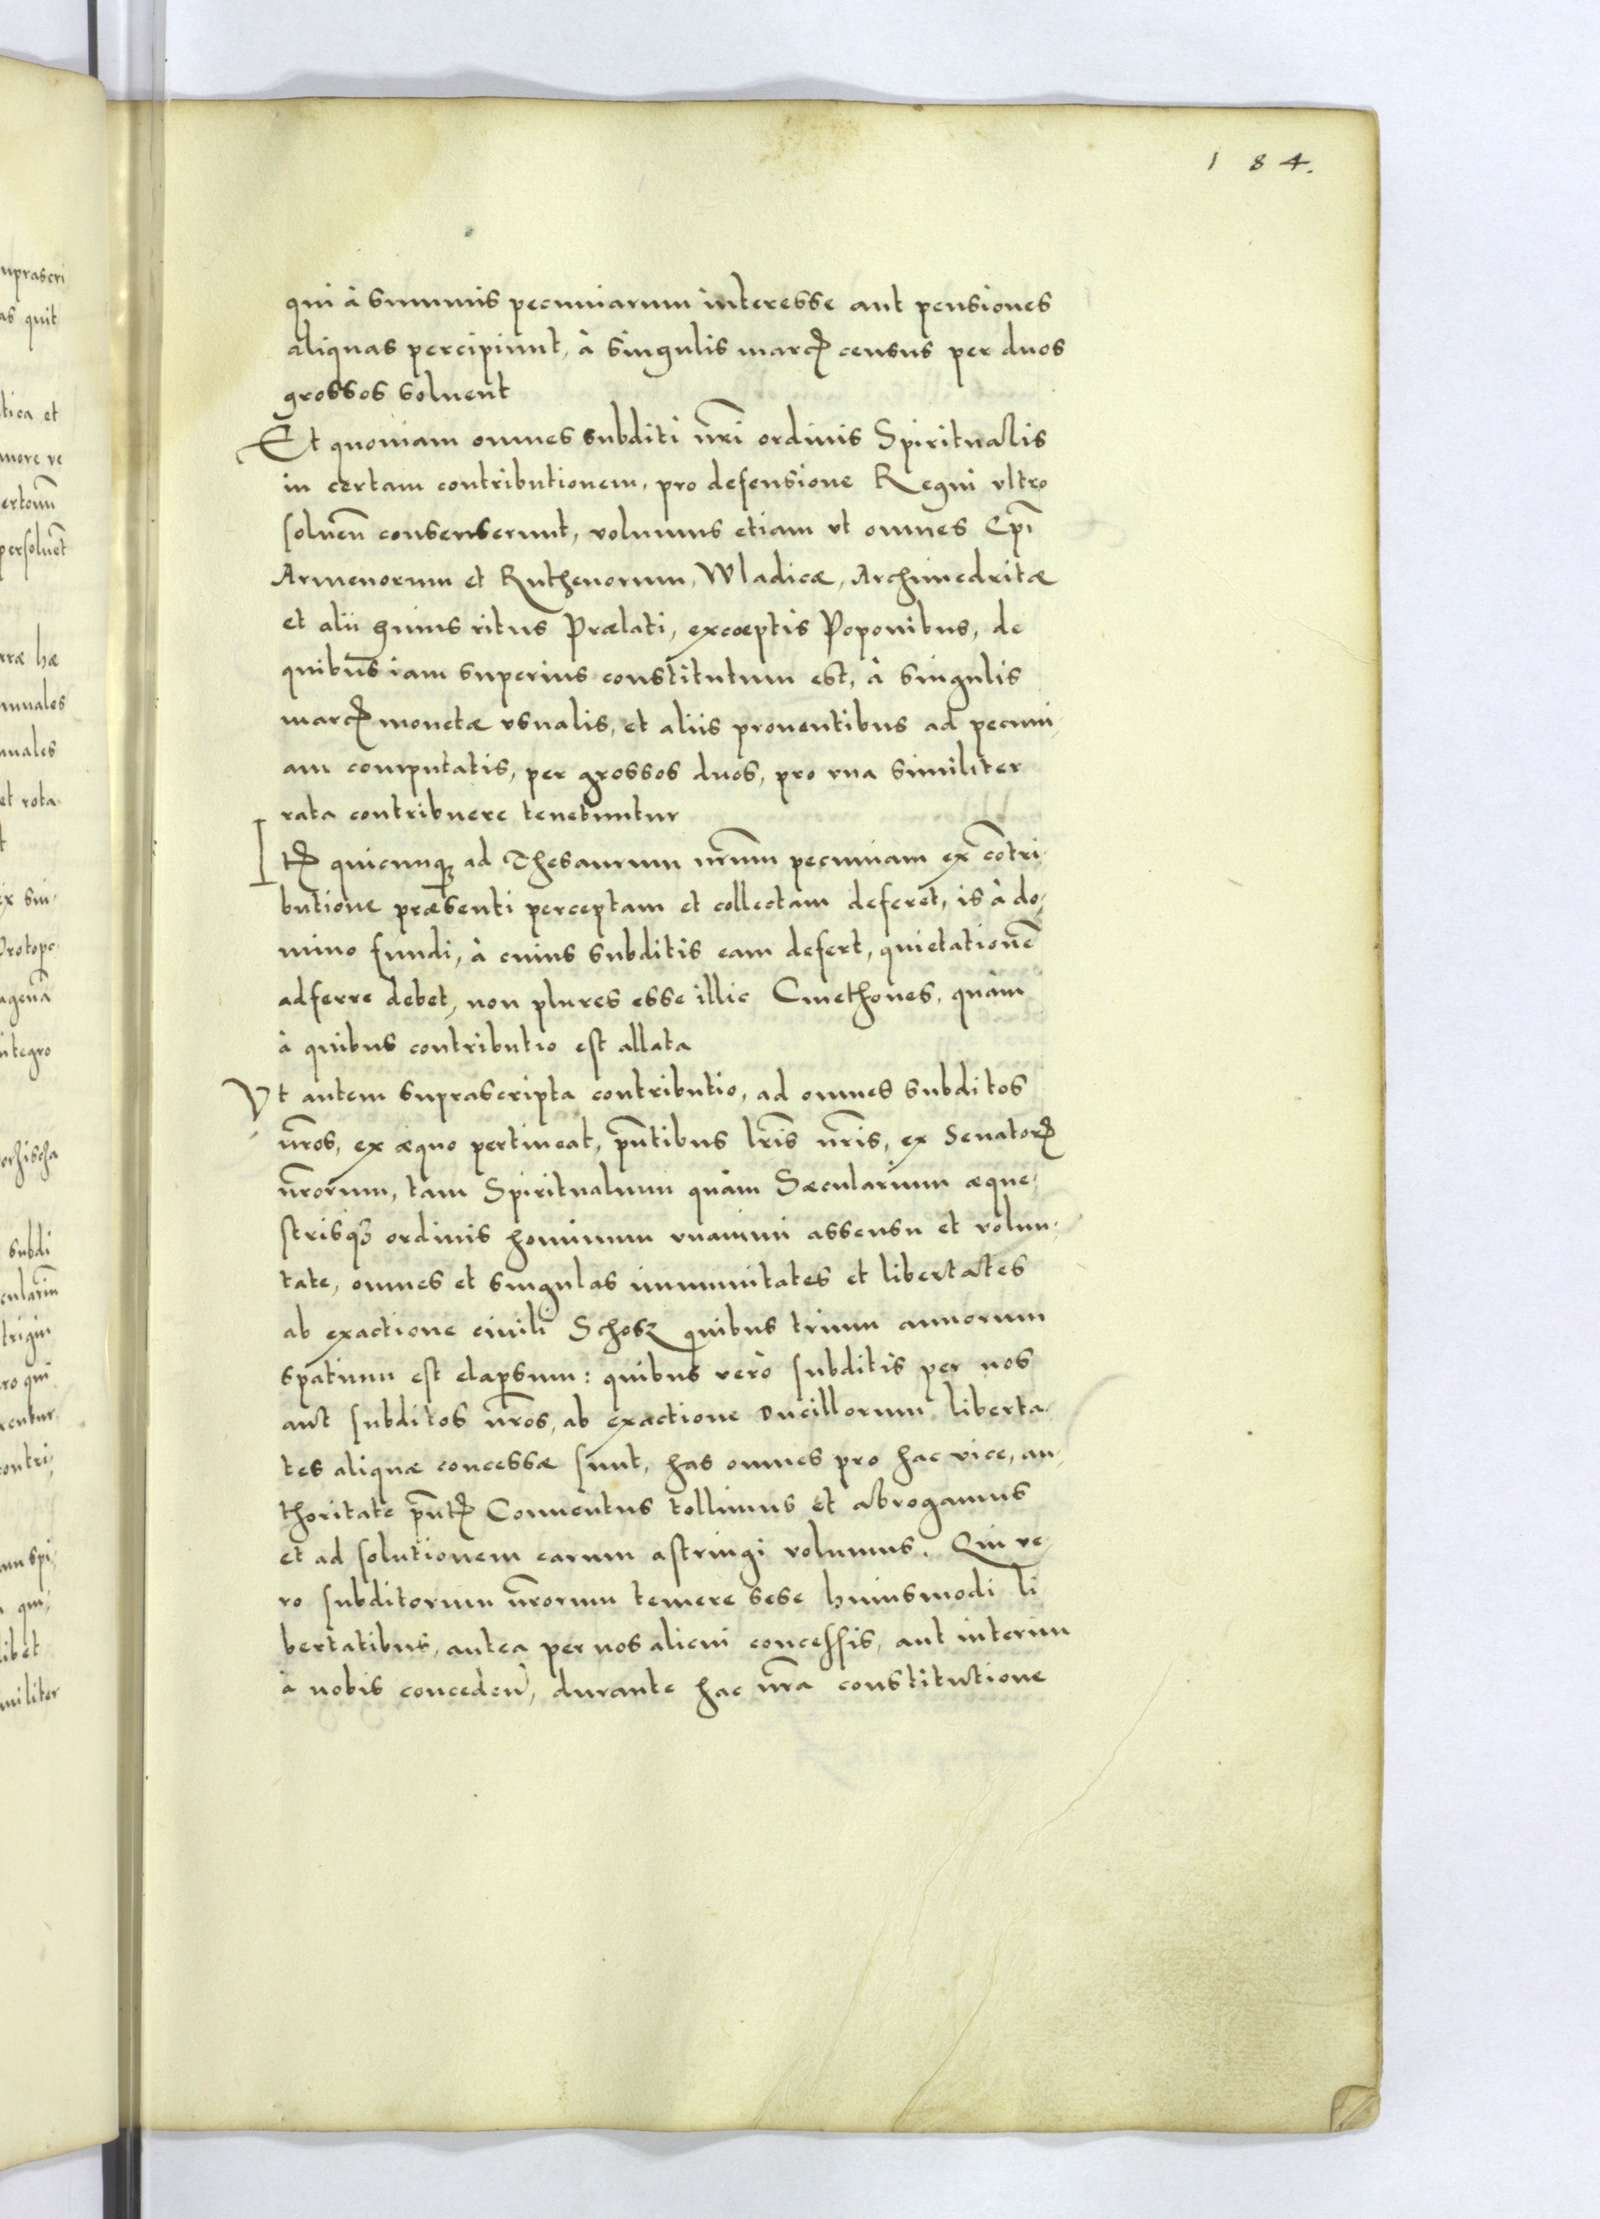 184.
qui à summis pecuniarum interesse aut pensiones
aliquas percipiunt, à singulis marcꝭ census per duos
grossos soluent
Et quoniam omnes subditi nr̃i ordinis Spiritualis
in certam contributionem, pro defensione Regni vltro
soluen̄ consenserunt, volumus etiam vt omnes Ep̃i
Armenorum et Ruthenorum, Wladicæ, Archimedritæ
et alii huius ritus Prælati, exceptis Poponibus, de
quibus iam superius constitutum est, à singulis
marcꝭ monetæ vsualis, et aliis prouentibus ad pecuni,
am computatis, per grossos duos, pro vna similiter
rata contribuere tenebuntur
Itꝭ quicunqꝫ ad Thesaurum nr̃um pecuniam ex cõtri,
butione præsenti perceptam et collectam deferet, is à do,
mino fundi, à cuius subditis eam defert, quietationẽ
adferre debet, non plures esse illic Cmethones, quàm
à quibus contributio est allata
Vt autem suprascripta contributio, ad omnes subditos
nr̃os, ex æquo pertineat, pñtibus lr̃is nr̃is, ex Senatorꝭ
nr̃orum, tam Spiritualium quàm Sæcularium æque,
strisqꝫ ordinis hominum vnanimi assensu et volun,
tate, omnes et singulas immunitates et libertates
ab exactione ciuili Schosz quibus trium annorum
spatium est elapsum: quibus verò subditis per nos
aut subditos nr̃os, ab exactione Ducillorum liberta,
tes aliquæ concessæ sunt, has omnes pro hac vice, au,
thoritate pñtꝭ Conuentus tollimus et abrogamus
et ad solutionem earum astringi volumus. Qui ve,
ro subditorum nr̃orum temere sese huiusmodi li
bertatibus, antea per nos alicui concessis, aut interim
à nobis conceden̄, durante hac nr̃a constitutione